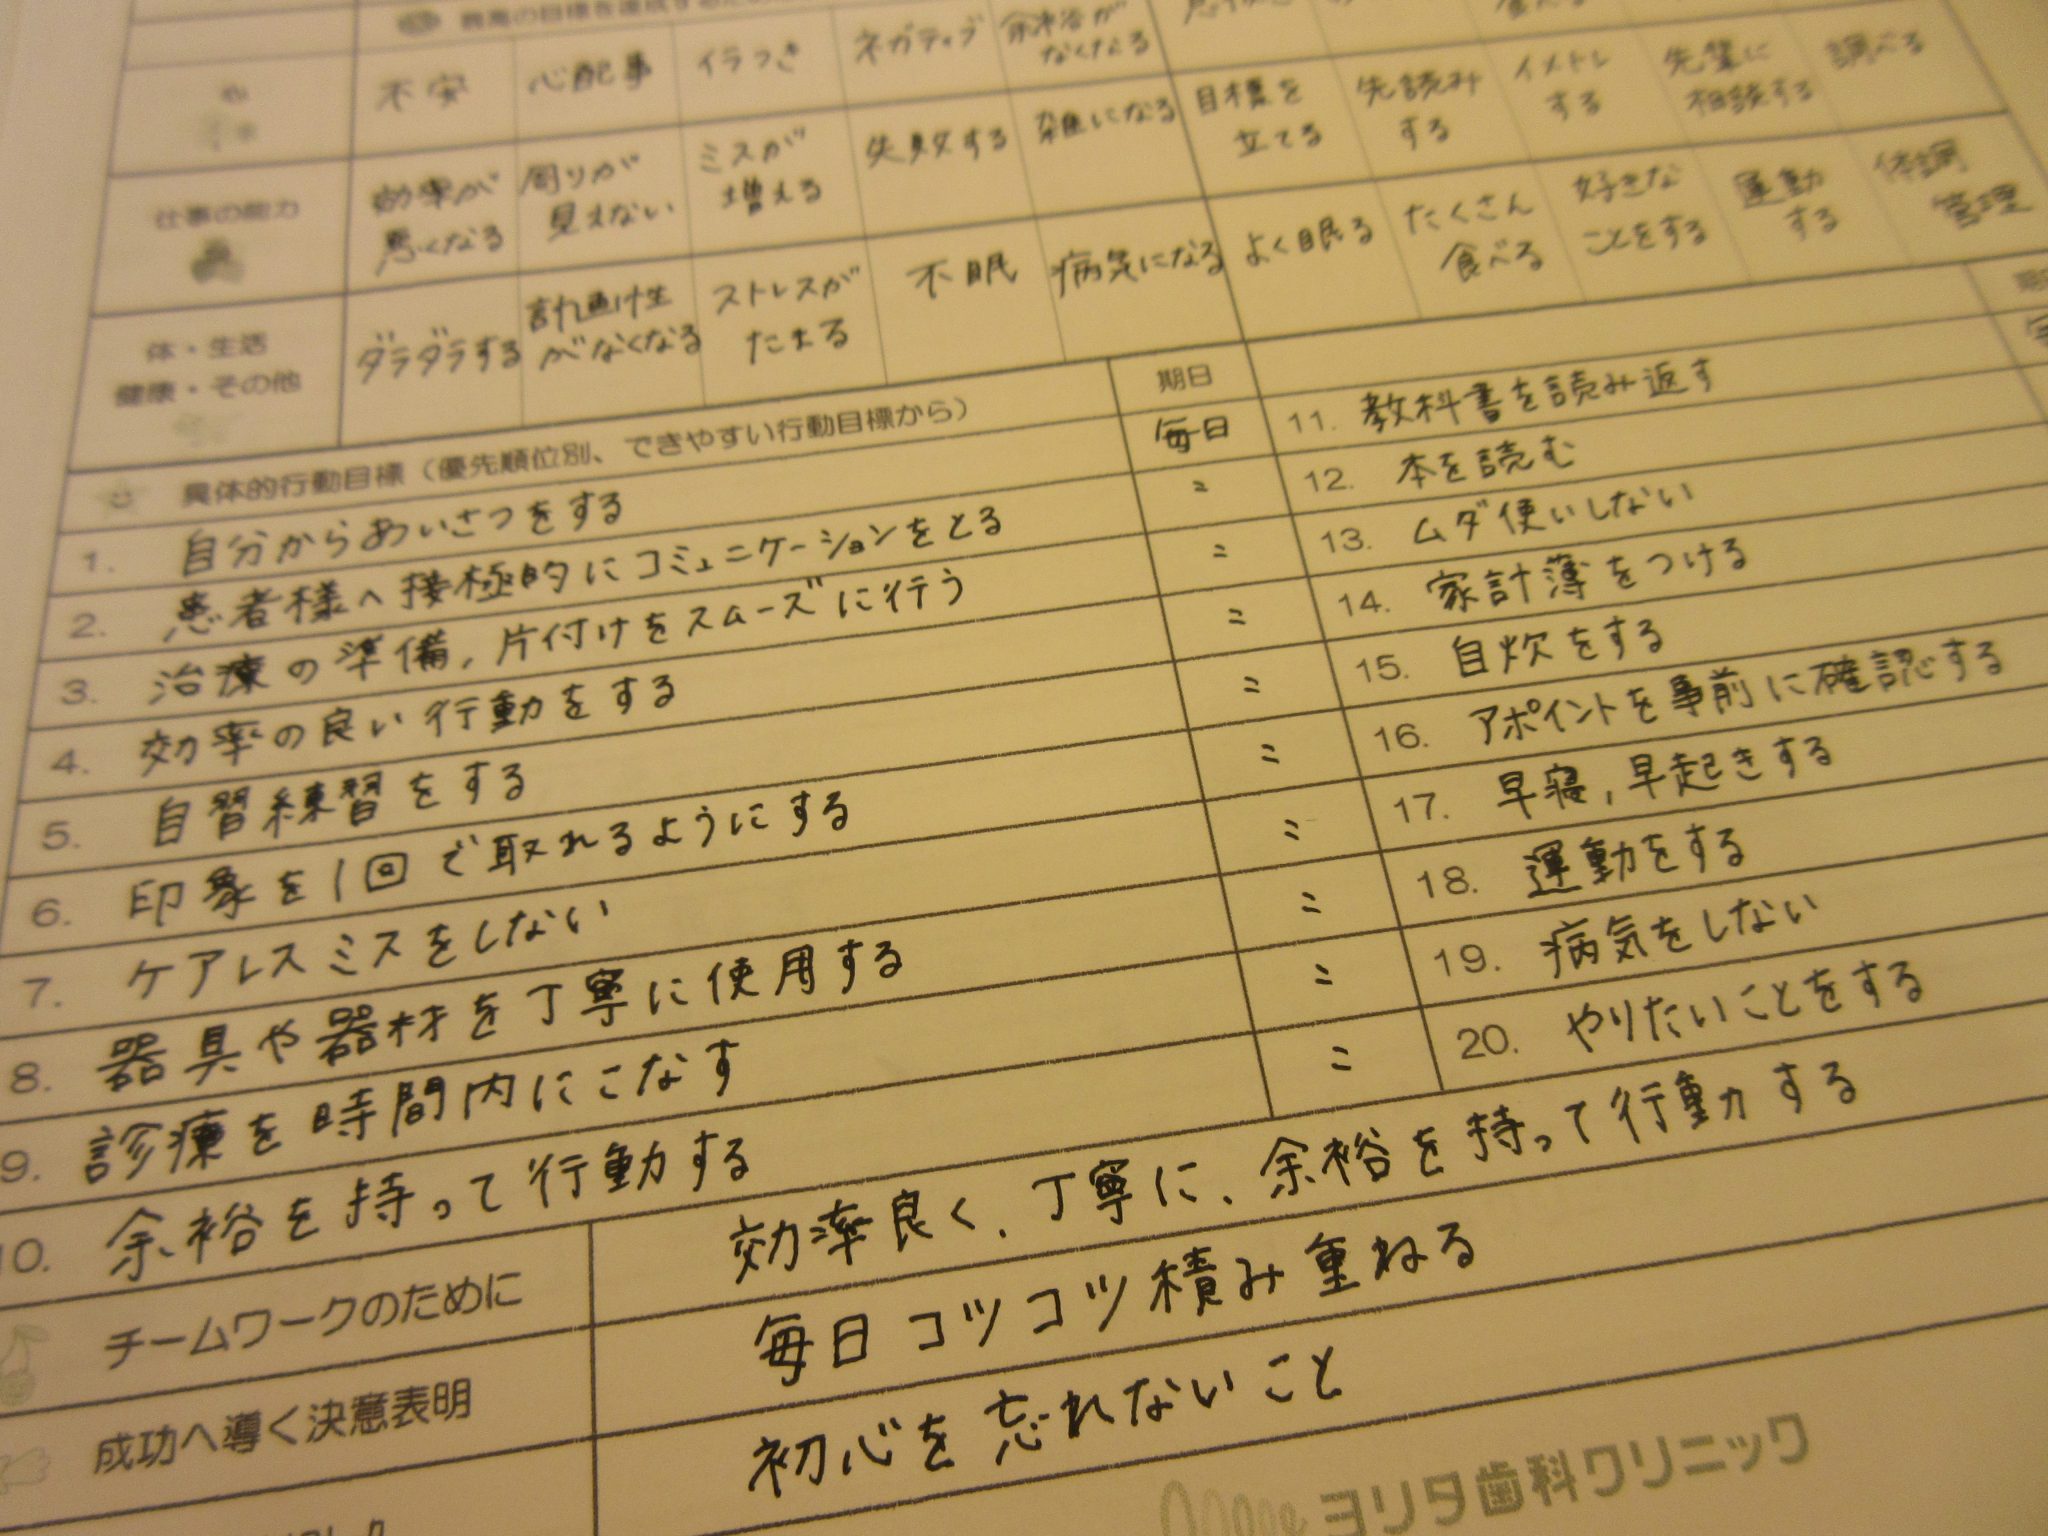 不安 心配事 イラつき ネガティブ 余裕がなくなる
目標を立てる 先読みする イメトレする 先輩に相談する 調べる
仕事の能力 効率が悪くなる 周りが見えない ミスが増える 失敗する 雑になる
よく眠る たくさん食べる 好きなことをする 運動する 体調管理
体・生活 健康・その他 ダラダラする 計画性がなくなる ストレスがたまる 不眠 病気になる
具体的行動目標(優先順位別、できやすい行動目標から) 期日
1. 自分からあいさつをする 毎日
2. 患者様へ接極的にコミュニケーションをとる 〃
3. 治療の準備,片付けをスムーズに行う 〃
4. 効率の良い行動をする 〃
5. 自習練習をする 〃
6. 印象を1回で取れるようにする 〃
7. ケアレスミスをしない 〃
8. 器具や器材を丁寧に使用する 〃
9. 診療を時間内にこなす 〃
10. 余裕を持って行動する 〃
11. 教科書を読み返す
12. 本を読む
13. ムダ使いしない
14. 家計簿をつける
15. 自炊をする
16. アポイントを事前に確認する
17. 早寝,早起きする
18. 運動をする
19. 病気をしない
20. やりたいことをする
チームワークのために 効率良く、丁寧に、余裕を持って行動する
成功へ導く決意表明 毎日コツコツ積み重ねる
初心を忘れないこと
ヨリタ歯科クリニック